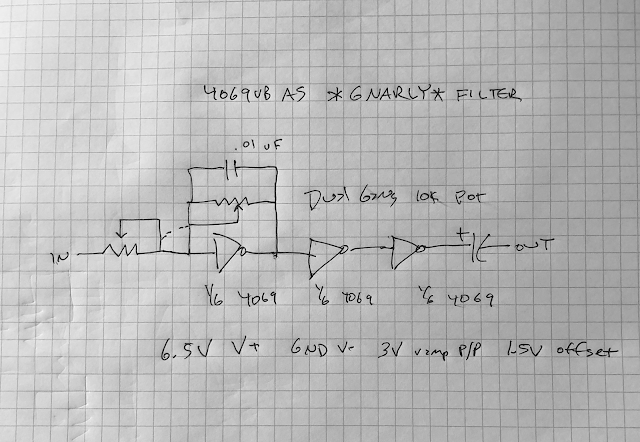 4069UB AS *GNARLY* FILTER
.01 uF
Dual Gang 10K Pot
IN
+
OUT
1/6 4069
1/6 4069
1/6 4069
6.5V V+ GND V- 3V ramp P/P 1.5V offset